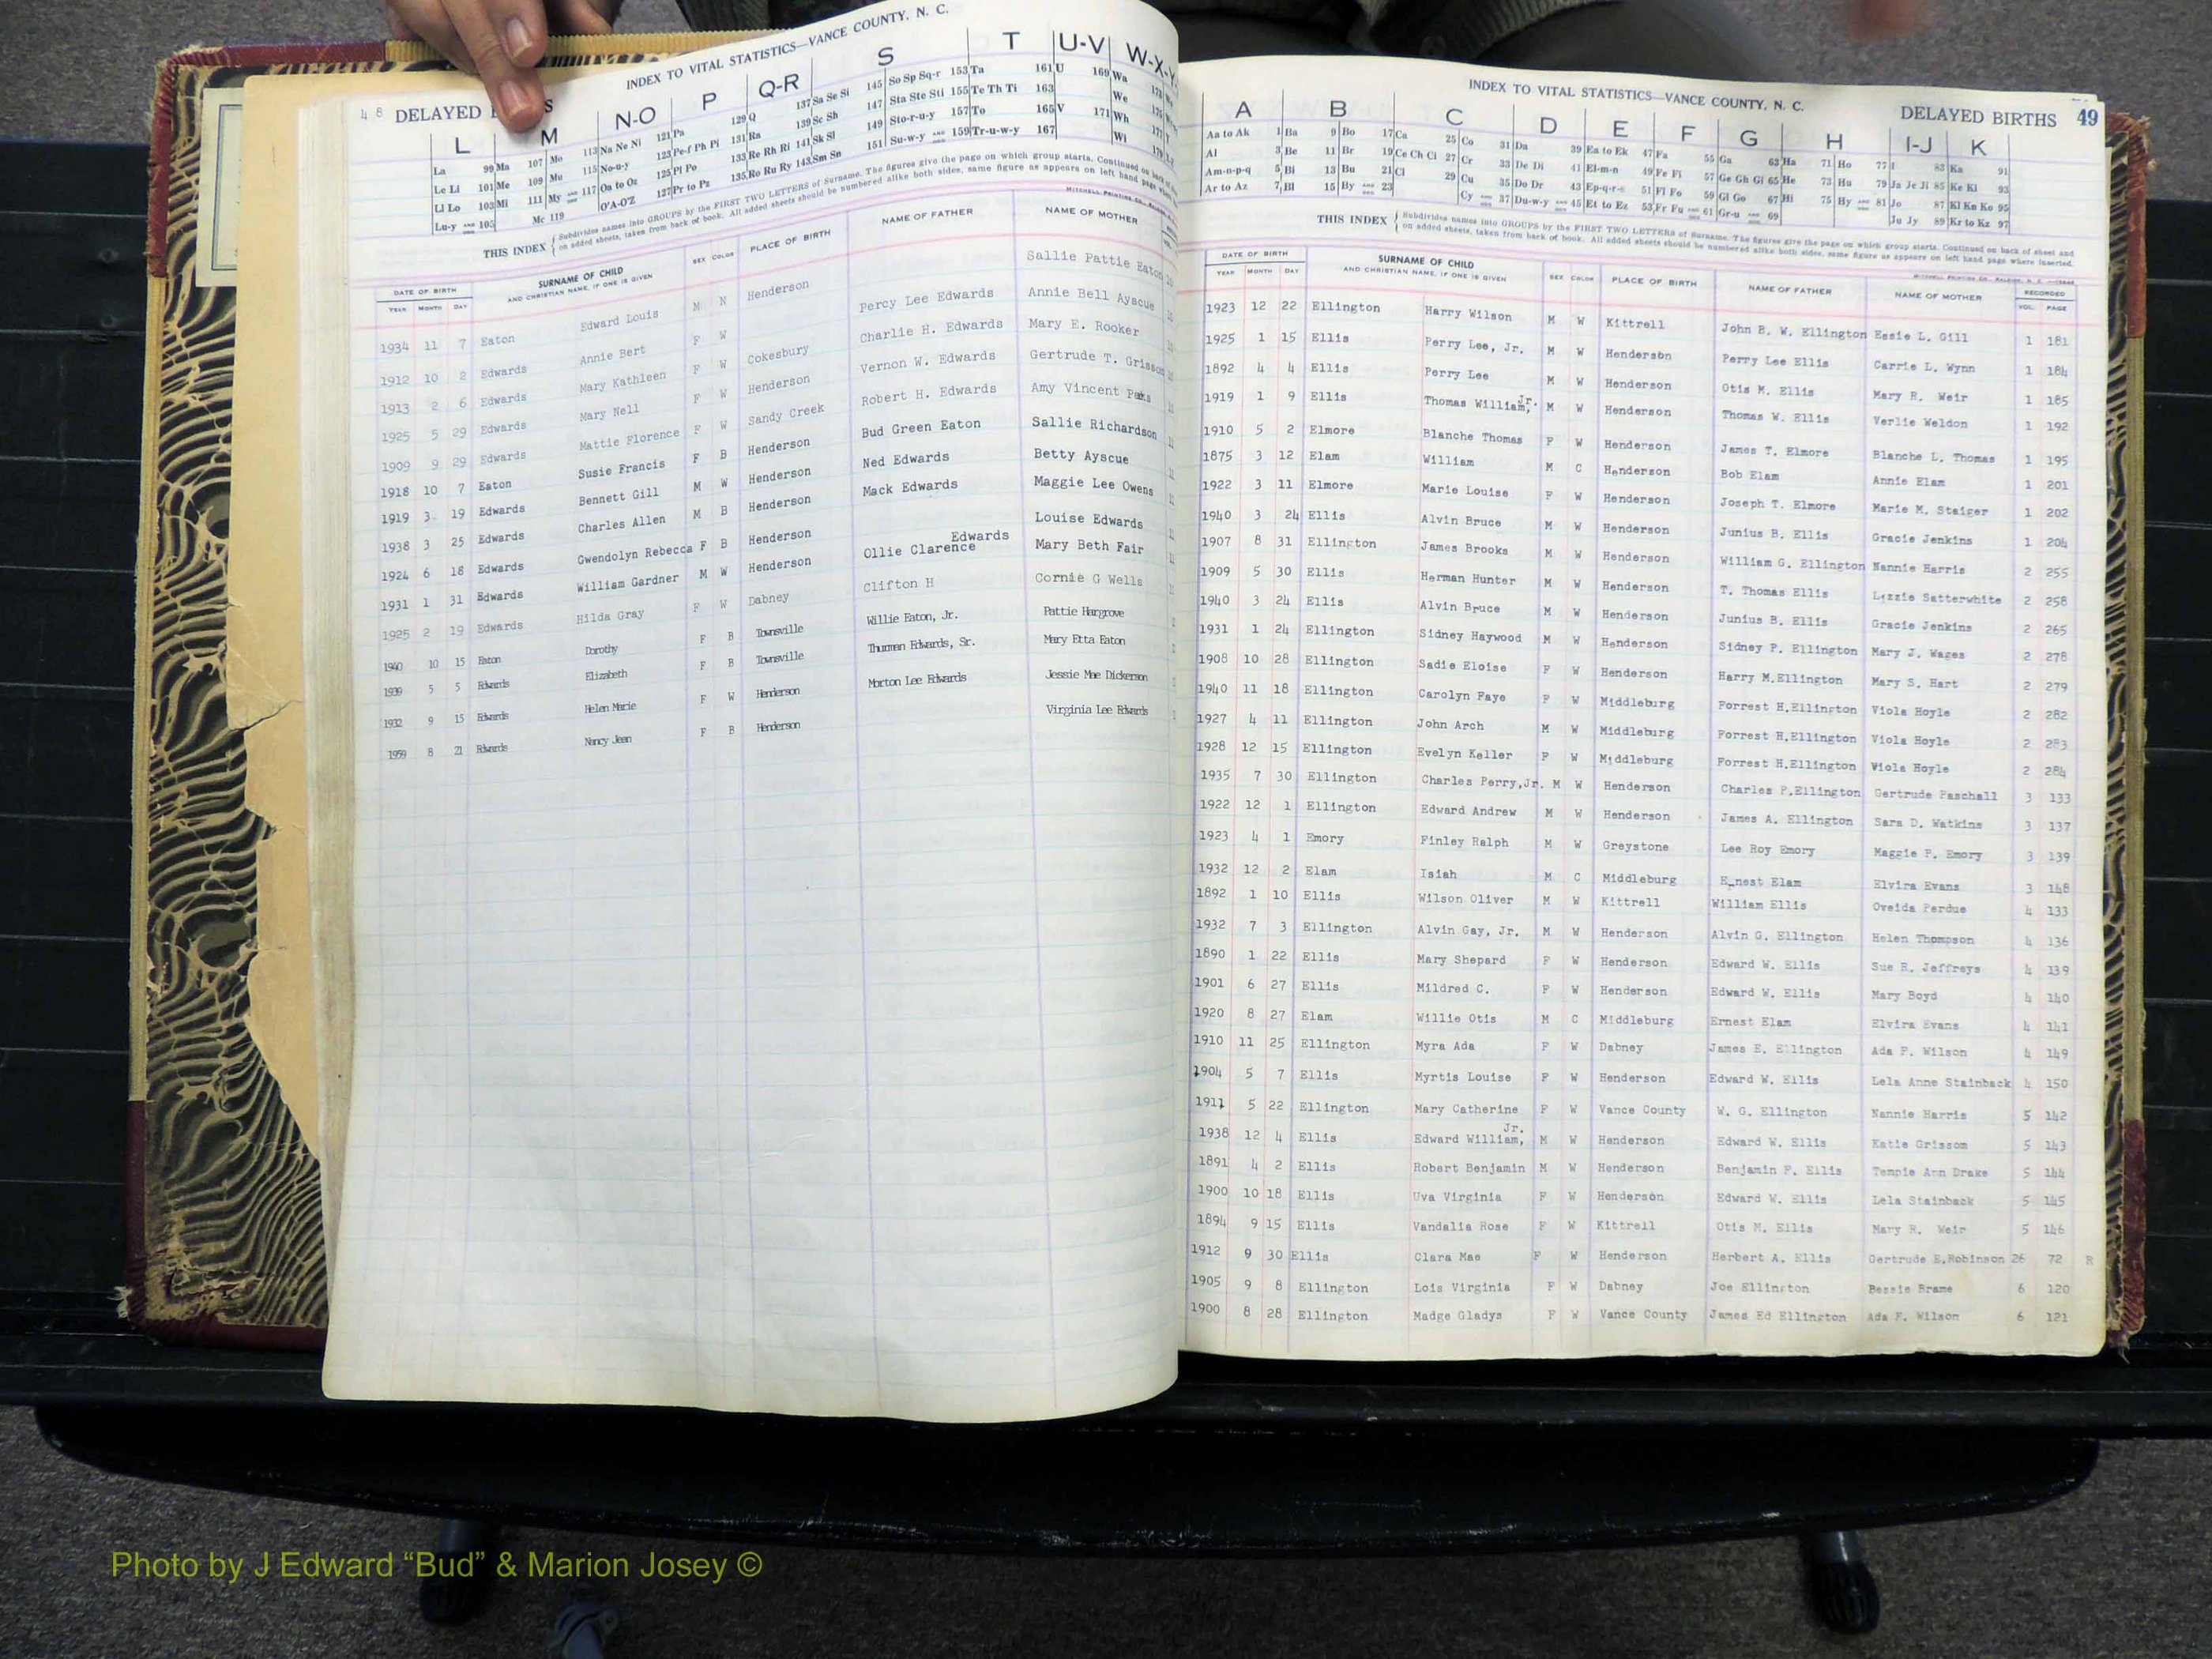 48 DELAYED
INDEX TO VITAL STATISTICS—VANCE COUNTY, N. C.
L M N-O P Q-R S T U-V W-X-Y
La 99 Ma 107 Mo 113 Na Ne Ni 121 Pa 129 Q 137 Sa Se Si 145 So Sp Sq-r 153 Ta 161 U 169 Wa
Le Li 101 Me 109 Mu 115 No-u-y 123 Pe-f Ph Pi 131 Ra 139 Sc Sh 147 Sta Ste Sti 155 Te Th Ti 163 We
Ll Lo 103 Mi 111 My AND 117 Oa to Oz 125 Pl Po 133 Re Rh Ri 141 Sk Sl 149 Sto-r-u-y 157 To 165 V 171 Wh
Lu-y AND 105 Mc 119 O'A-O'Z 127 Pr to Pz 135 Ro Ru Ry 143 Sm Sn 151 Su-w-y AND 159 Tr-u-w-y 167 Wi
THIS INDEX { Subdivides names into GROUPS by the FIRST TWO LETTERS of Surname. The figures give the page on which group starts. Continued on back
on added sheets, taken from back of book. All added sheets should be numbered alike both sides, same figure as appears on left hand page
DATE OF BIRTH SURNAME OF CHILD SEX COLOR PLACE OF BIRTH NAME OF FATHER NAME OF MOTHER
YEAR MONTH DAY AND CHRISTIAN NAME, IF ONE IS GIVEN
1934 11 7 Eaton Edward Louis M N Henderson Sallie Pattie Eaton
1912 10 2 Edwards Annie Bert F W Percy Lee Edwards Annie Bell Ayscue
1913 2 6 Edwards Mary Kathleen F W Cokesbury Charlie H. Edwards Mary E. Rooker
1925 5 29 Edwards Mary Nell F W Henderson Vernon W. Edwards Gertrude T. Grissom
1909 9 29 Edwards Mattie Florence F W Sandy Creek Robert H. Edwards Amy Vincent Paks
1918 10 7 Eaton Susie Francis F B Henderson Bud Green Eaton Sallie Richardson
1919 3 19 Edwards Bennett Gill M W Henderson Ned Edwards Betty Ayscue
1938 3 25 Edwards Charles Allen M B Henderson Mack Edwards Maggie Lee Owens
1924 6 18 Edwards Gwendolyn Rebecca F B Henderson Louise Edwards
1931 1 31 Edwards William Gardner M W Henderson Ollie Clarence Edwards Mary Beth Fair
1925 2 19 Edwards Hilda Gray F W Dabney Clifton H Cornie G Wells
1940 10 15 Eaton Dorothy F B Townsville Willie Eaton, Jr. Pattie Hargrove
1939 5 5 Edwards Elizabeth F B Townsville Thurman Edwards, Sr. Mary Etta Eaton
1932 9 15 Edwards Helen Marie F W Henderson Morton Lee Edwards Jessie Mae Dickerson
1959 8 21 Edwards Nancy Jean F B Henderson Virginia Lee Edwards
INDEX TO VITAL STATISTICS—VANCE COUNTY, N. C. DELAYED BIRTHS 49
A B C D E F G H I-J K
Aa to Ak 1 Ba 9 Bo 17 Ca 25 Co 31 Da 39 Ea to Ek 47 Fa 55 Ga 63 Ha 71 Ho 77 I 83 Ka 91
Al 3 Be 11 Br 19 Ce Ch Ci 27 Cr 33 De Di 41 El-m-n 49 Fe Fi 57 Ge Gh Gi 65 He 73 Hu 79 Ja Je Ji 85 Ke Ki 93
Am-n-p-q 5 Bi 13 Bu 21 Cl 29 Cu 35 Do Dr 43 Ep-q-r-s 51 Fl Fo 59 Gl Go 67 Hi 75 Hy AND 81 Jo 87 Kl Kn Ko 95
Ar to Az 7 Bl 15 By AND 23 Cy AND 37 Du-w-y AND 45 Et to Ez 53 Fr Fu AND 61 Gr-u AND 69 Ju Jy 89 Kr to Kz 97
THIS INDEX { Subdivides names into GROUPS by the FIRST TWO LETTERS of Surname. The figures give the page on which group starts. Continued on back of sheet and
on added sheets, taken from back of book. All added sheets should be numbered alike both sides, same figure as appears on left hand page where inserted.
DATE OF BIRTH SURNAME OF CHILD SEX COLOR PLACE OF BIRTH NAME OF FATHER NAME OF MOTHER RECORDED
YEAR MONTH DAY AND CHRISTIAN NAME, IF ONE IS GIVEN VOL. PAGE
1923 12 22 Ellington Harry Wilson M W Kittrell John B. W. Ellington Essie L. Gill 1 181
1925 1 15 Ellis Perry Lee, Jr. M W Henderson Perry Lee Ellis Carrie L. Wynn 1 184
1892 4 4 Ellis Perry Lee M W Henderson Otis M. Ellis Mary R. Weir 1 185
1919 1 9 Ellis Thomas William, Jr. M W Henderson Thomas W. Ellis Verlie Weldon 1 192
1910 5 2 Elmore Blanche Thomas F W Henderson James T. Elmore Blanche L. Thomas 1 195
1875 3 12 Elam William M C Henderson Bob Elam Annie Elam 1 201
1922 3 11 Elmore Marie Louise F W Henderson Joseph T. Elmore Marie M. Staiger 1 202
1940 3 24 Ellis Alvin Bruce M W Henderson Junius B. Ellis Gracie Jenkins 1 204
1907 8 31 Ellington James Brooks M W Henderson William G. Ellington Nannie Harris 2 255
1909 5 30 Ellis Herman Hunter M W Henderson T. Thomas Ellis Lizzie Satterwhite 2 258
1940 3 24 Ellis Alvin Bruce M W Henderson Junius B. Ellis Gracie Jenkins 2 265
1931 1 24 Ellington Sidney Haywood M W Henderson Sidney P. Ellington Mary J. Wages 2 278
1908 10 28 Ellington Sadie Eloise F W Henderson Harry M.Ellington Mary S. Hart 2 279
1940 11 18 Ellington Carolyn Faye F W Middleburg Forrest H.Ellington Viola Hoyle 2 282
1927 4 11 Ellington John Arch M W Middleburg Forrest H.Ellington Viola Hoyle 2 283
1928 12 15 Ellington Evelyn Keller F W Middleburg Forrest H.Ellington Viola Hoyle 2 284
1935 7 30 Ellington Charles Perry,Jr. M W Henderson Charles P.Ellington Gertrude Paschall 3 133
1922 12 1 Ellington Edward Andrew M W Henderson James A. Ellington Sara D. Watkins 3 137
1923 4 1 Emory Finley Ralph M W Greystone Lee Roy Emory Maggie P. Emory 3 139
1932 12 2 Elam Isiah M C Middleburg Ernest Elam Elvira Evans 3 148
1892 1 10 Ellis Wilson Oliver M W Kittrell William Ellis Oveida Perdue 4 133
1932 7 3 Ellington Alvin Gay, Jr. M W Henderson Alvin G. Ellington Helen Thompson 4 136
1890 1 22 Ellis Mary Shepard F W Henderson Edward W. Ellis Sue R. Jeffreys 4 139
1901 6 27 Ellis Mildred C. F W Henderson Edward W. Ellis Mary Boyd 4 140
1920 8 27 Elam Willie Otis M C Middleburg Ernest Elam Elvira Evans 4 141
1910 11 25 Ellington Myra Ada F W Dabney James E. Ellington Ada F. Wilson 4 149
1904 5 7 Ellis Myrtis Louise F W Henderson Edward W. Ellis Lela Anne Stainback 4 150
1911 5 22 Ellington Mary Catherine F W Vance County W. G. Ellington Nannie Harris 5 142
1938 12 4 Ellis Edward William, Jr. M W Henderson Edward W. Ellis Katie Grissom 5 143
1891 4 2 Ellis Robert Benjamin M W Henderson Benjamin F. Ellis Tempie Ann Drake 5 144
1900 10 18 Ellis Uva Virginia F W Henderson Edward W. Ellis Lela Stainback 5 145
1894 9 15 Ellis Vandalia Rose F W Kittrell Otis M. Ellis Mary R. Weir 5 146
1912 9 30 Ellis Clara Mae F W Henderson Herbert A. Ellis Gertrude E.Robinson 26 72 R
1905 9 8 Ellington Lois Virginia F W Dabney Joe Ellington Bessie Brame 6 120
1900 8 28 Ellington Madge Gladys F W Vance County James Ed Ellington Ada F. Wilson 6 121
Photo by J Edward “Bud” & Marion Josey ©